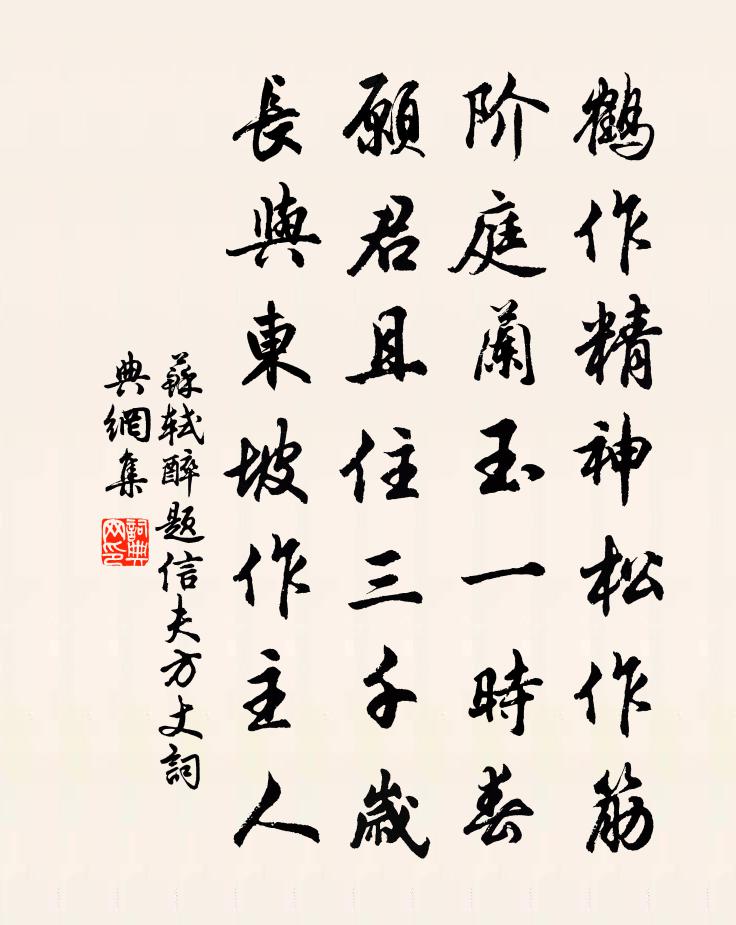 鹤作精神松作筋
阶庭蘭玉一時春
願君且住三千歲
長與東坡作主人
蘇軾醉题信夫方丈詞
典網集
詞典网印